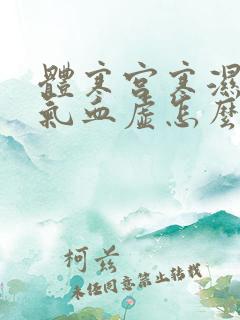 體寒宮寒濕
氣血虛怎麼
柯茲
未经同意禁止转载